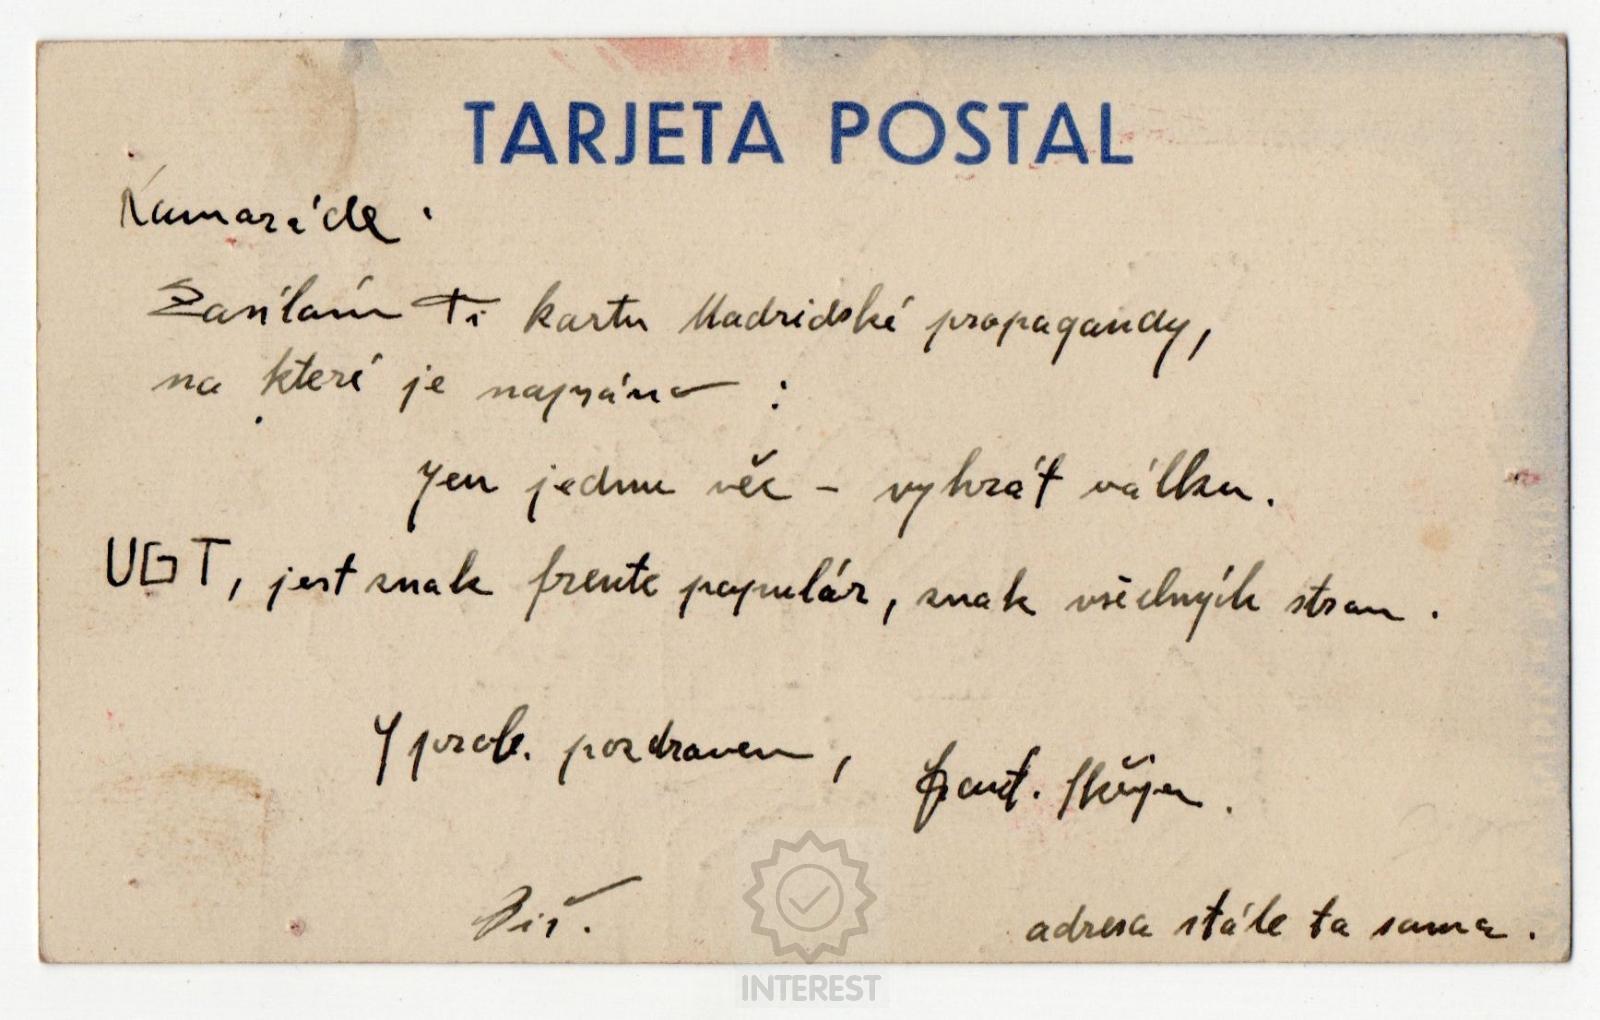 TARJETA POSTAL
Kamaráde.
Zasílám Ti kartu Madridské propagandy,
na které je napsáno :
Jen jednu věc – vyhrát válku.
UGT, jest znak frente populár, znak všech stran.
S prol. pozdravem, Frant.
Piš.
adresa stále ta sama.
INTEREST